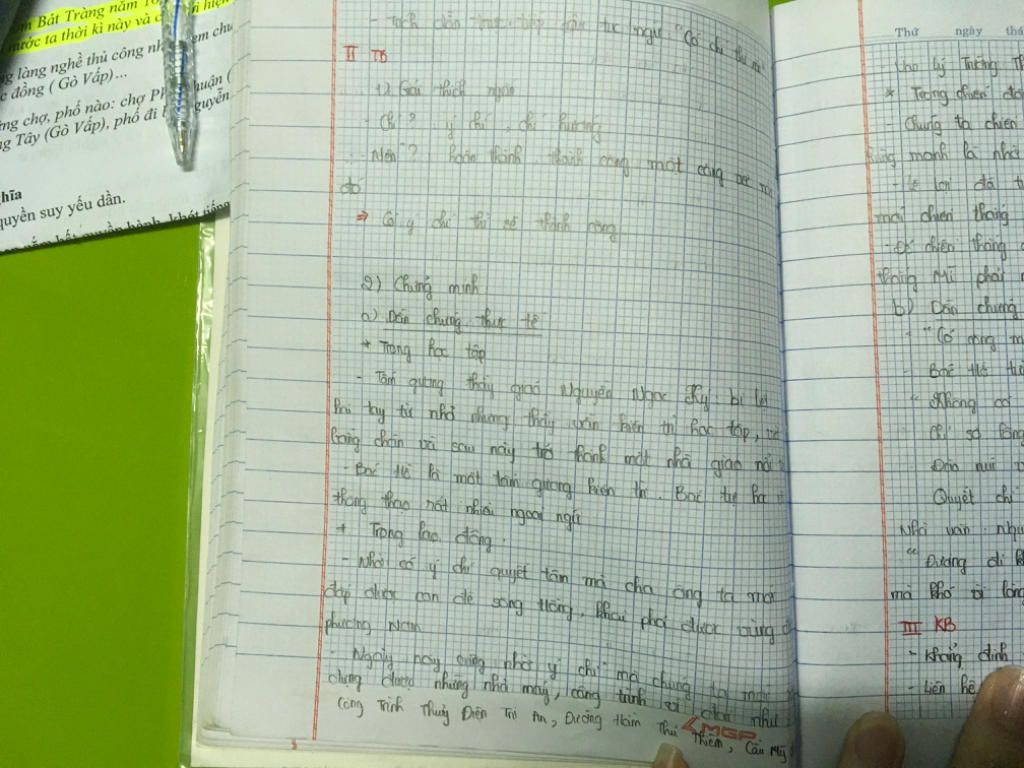 ốm Bát Tràng năm 16
nước ta thời kì này và c hiện
g làng nghề thủ công nh em chu
c đồng ( Gò Vấp)...
ng chợ, phố nào: chợ Ph huận (
ng Tây (Gò Vấp), phố đi b guyễn
ghĩa
quyền suy yếu dần.
- Tách dẫn trực tiếp câu tục ngữ "Có chí thì nên
II TB
1) Giải thích nghĩa
- Chí ? ý chí, chí hướng
- Nên ? hoàn thành, thành công một công việc
đó
⇒ Có ý chí thì sẽ thành công
2) Chứng minh
a) Dẫn chứng thực tế
* Trong học tập
- Tấm gương thầy giáo Nguyễn Ngọc Ký bị liệt
hai tay từ nhỏ nhưng thầy vẫn kiên trì học tập,
bằng chân và sau này trở thành một nhà giáo
- Bác Hồ là một tấm gương kiên trì. Bác tự học
thông thạo rất nhiều ngoại ngữ
* Trong lao động.
- Nhờ có ý chí quyết tâm mà cha ông ta mới
đắp được con đê sông Hồng, khai phá được vùng
phương Nam
- Ngày nay cũng nhờ ý chí mà chúng ta mới
dựng được những nhà máy, công trình vĩ đại như
Công Trình Thuỷ Điện Trị An, Đường Hầm Thủ Thiêm, Cầu Mỹ
MGP
Thứ ngày thá
Cho Lý Trường
* Trong chiến đấ
- Chúng ta chiến
hùng mạnh là nhờ
- Lê Lợi đã
mới chiến thắng
- Để chiến thắng
thắng Mĩ phải
b) Dẫn chứng
- "Có công m
- Bác Hồ từ
" Không có
Chỉ sợ lòng
Đào núi
Quyết chí
Nhà văn Ngu
" Đường đi k
mà khó vì lòng
III KB
- Khẳng định
- Liên hệ